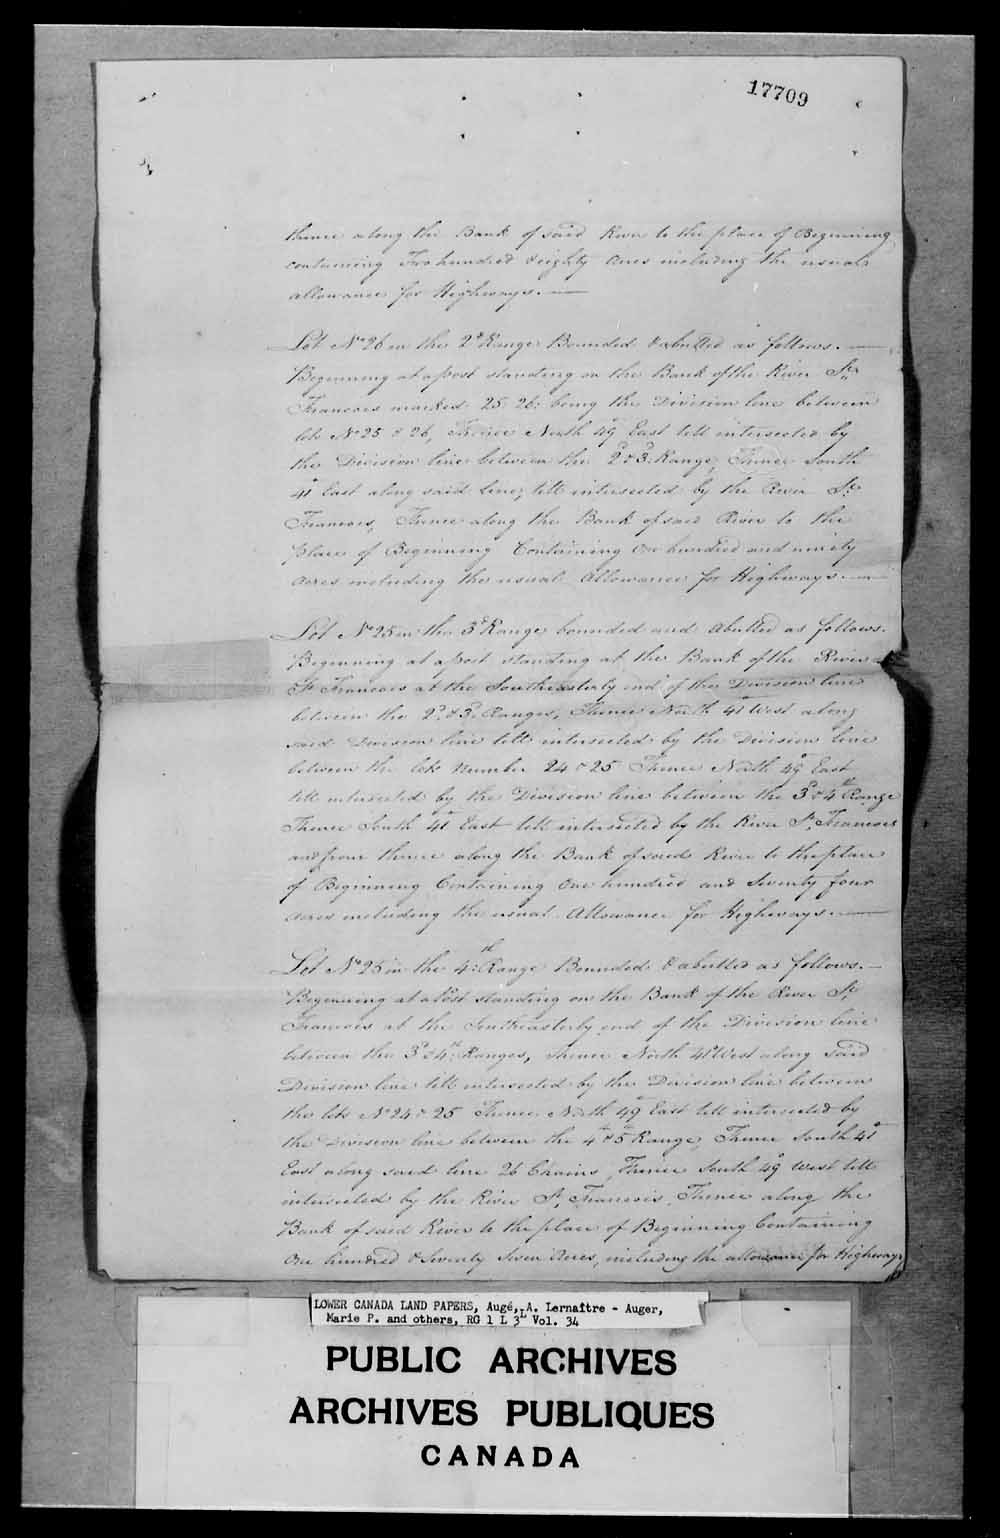 17709
thence along the Bank of said River to the place of Beginning
containing Two hundred & eighty Acres including the usual
allowance for Highways.
Lot No 26 in the 2d Range Bounded & abutted as follows.
Beginning at a post standing on the Bank of the River St
Francois marked 25. 26: being the Division line between
lots No 25 & 26, Thence North 49° East till intersected by
the Division line between the 2d & 3d Range, Thence South
41° East along said line, till intersected by the River St
Francois, Thence along the Bank of said River to the
place of Beginning Containing One hundred and ninety
Acres including the usual Allowance for Highways.
Lot No 25 in the 3d Range bounded and Abutted as follows.
Beginning at a post standing at the Bank of the River
St Francois at the Southeasterly end of the Division line
between the 2d & 3d Ranges, Thence North 41° West along
said Division line till intersected by the Division line
between the lots Number 24 & 25 Thence North 49° East
till intersected by the Division line between the 3d & 4th Range
Thence South 41° East till intersected by the River St Francois
and from thence along the Bank of said River to the place
of Beginning Containing One hundred and Seventy four
Acres including the usual Allowance for Highways.
Lot No 25 in the 4th Range Bounded & abutted as follows.
Beginning at a Post standing on the Bank of the River St
Francois at the Southeasterly end of the Division line
between the 3d & 4th Ranges, thence North 41° West along said
Division line till intersected by the Division line between
the lots No 24 & 25 Thence North 49° East till intersected by
the Division line between the 4th & 5th Range, Thence South 41°
East along said line 26 Chains, Thence South 49° West till
intersected by the River St Francois, Thence along the
Bank of said River to the place of Beginning Containing
One hundred & Seventy Seven Acres, including the allowance for Highways
LOWER CANADA LAND PAPERS, Augé, A. Lernaître - Auger,
Marie P. and others, RG 1 L 3L Vol. 34
PUBLIC ARCHIVES
ARCHIVES PUBLIQUES
CANADA